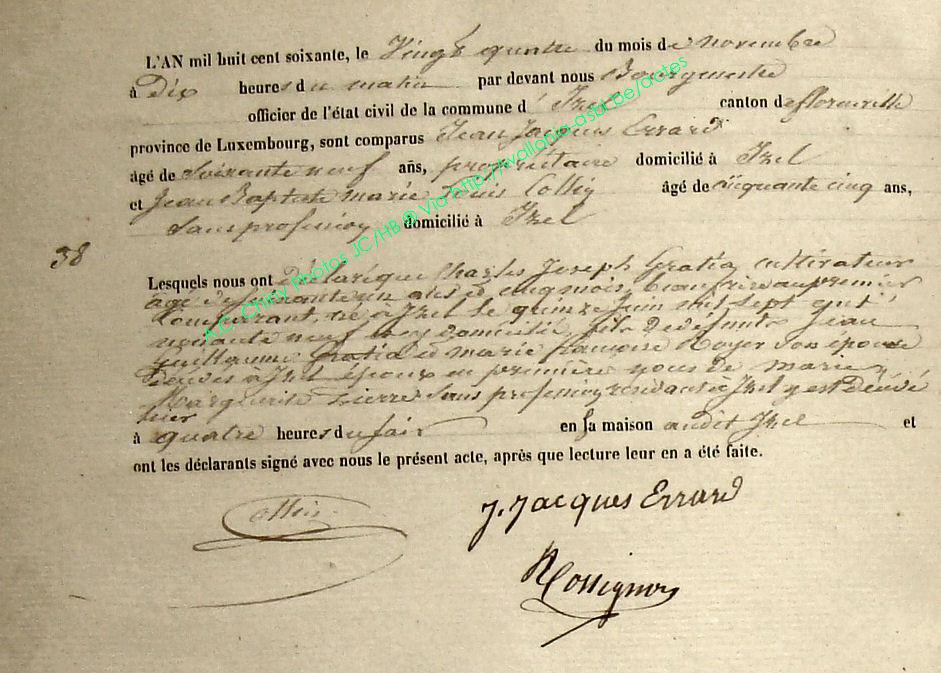 L'AN mil huit cent soixante, le Vingt quatre du mois de novembre
à Dix heures du matin par devant nous Bourgmestre
officier de l'état civil de la commune d' Izel canton de florenville
province de Luxembourg, sont comparus Jean Jacques Errard
âgé de soixante neuf ans, propriétaire domicilié à Izel
et Jean Baptiste marie Louis Collin âgé de cinquante cinq ans,
sans profession domicilié à Izel
38
Lesquels nous ont déclaré que Charles Joseph Gratia cultivateur
âgé de soixante un ans et cinq mois, beau frère au premier
Comparant, né à Izel le quinze Juin mil sept cent
nonante neuf y domicilié, fils de défunts Jean
Guillaume Gratia et marie françoise Royer son épouse
décédés à Izel époux en première noces de marie
Marguerite Pierre sans profession résidant à Izel y est Décédé
hier
à quatre heures du soir en sa maison audit Izel et
ont les déclarants signé avec nous le présent acte, après que lecture leur en a été faite.
Collin
J. Jacques Errard
Rossignon
A.C. Chiny Photos JC/HB @ Via http://wallonia-asbl.be/actes